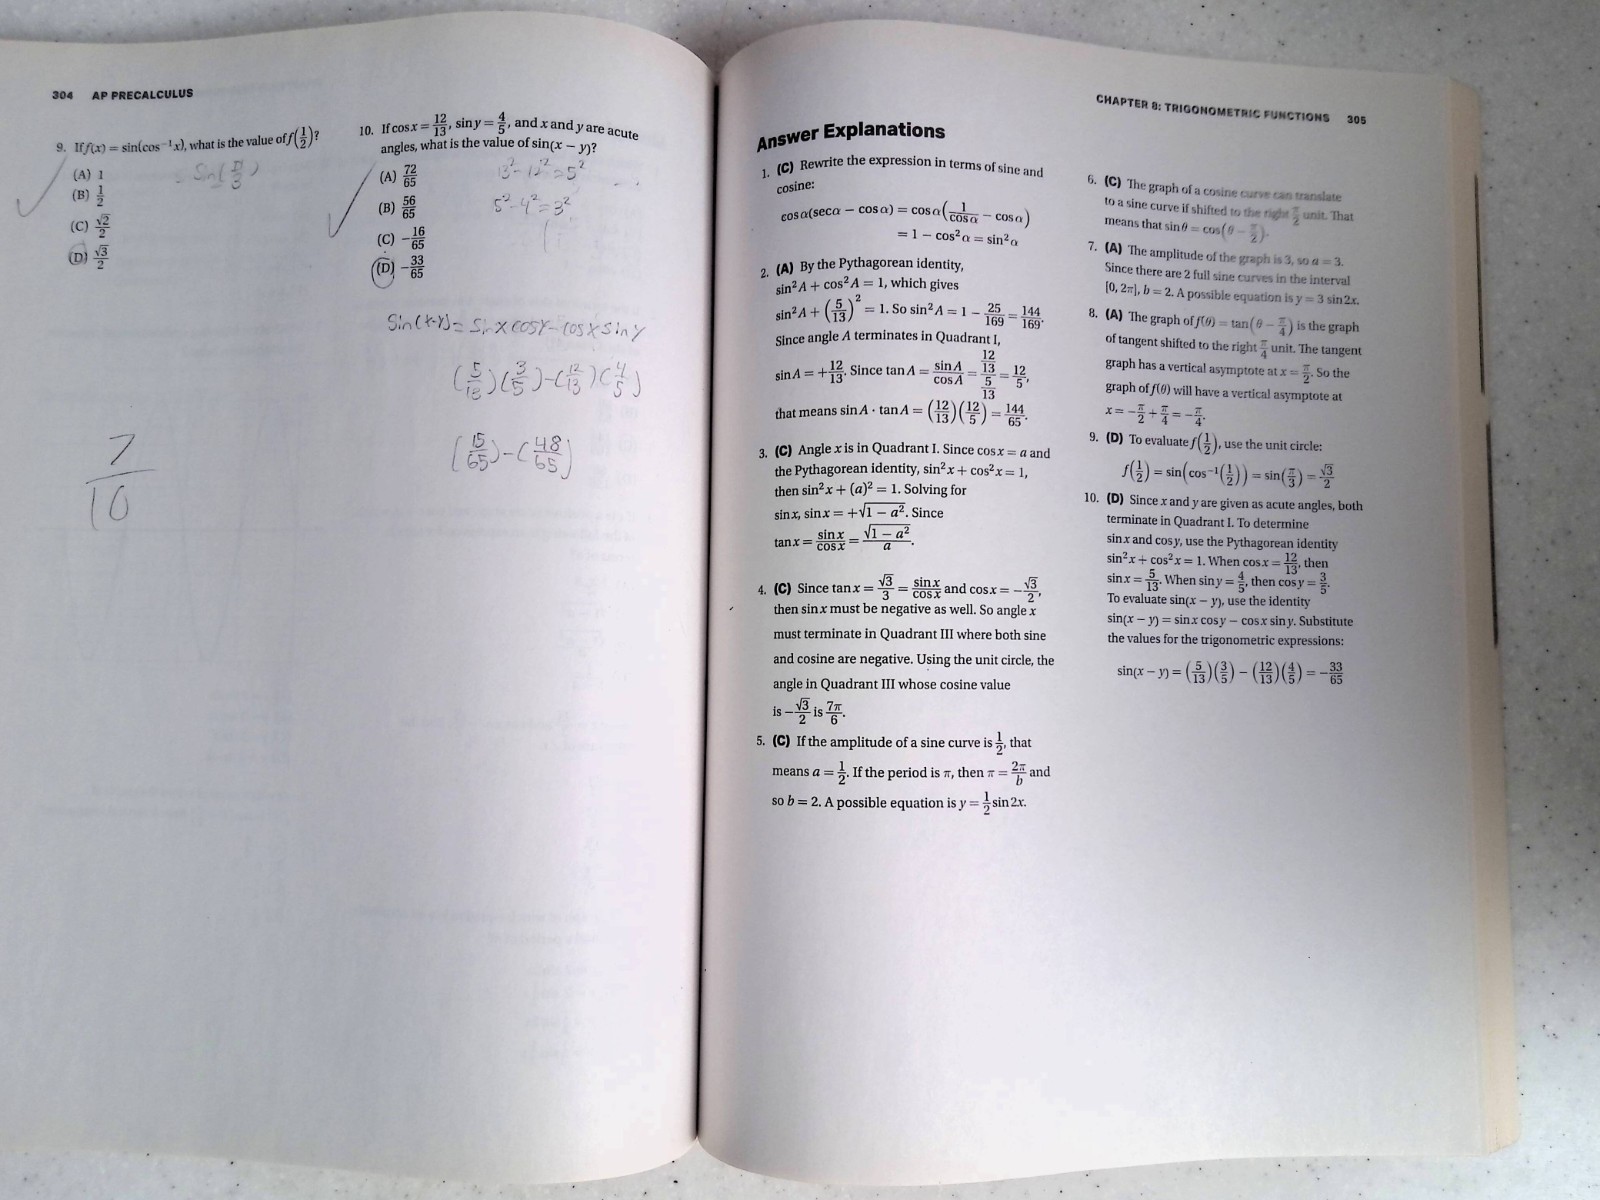 304 AP PRECALCULUS
9. If f(x) = sin(cos⁻¹x), what is the value of f(1/2)?
= Sin(π/3)
(A) 1
(B) 1/2
(C) √2/2
(D) √3/2
7/10
10. If cos x = 12/13, sin y = 4/5, and x and y are acute
angles, what is the value of sin(x − y)?
(A) 72/65
(B) 56/65
(C) −16/65
(D) −33/65
13² - 12² = 5²
5² - 4² = 3²
Sin(x-y) = Sin x cos y - cos x sin y
(5/13)(3/5) - (12/13)(4/5)
(15/65) - (48/65)
CHAPTER 8: TRIGONOMETRIC FUNCTIONS 305
Answer Explanations
1. (C) Rewrite the expression in terms of sine and
cosine:
cos α(sec α − cos α) = cos α(1/cos α − cos α)
= 1 − cos²α = sin²α
2. (A) By the Pythagorean identity,
sin²A + cos²A = 1, which gives
sin²A + (5/13)² = 1. So sin²A = 1 − 25/169 = 144/169.
Since angle A terminates in Quadrant I,
sin A = +12/13. Since tan A = sin A/cos A = (12/13)/(5/13) = 12/5,
that means sin A · tan A = (12/13)(12/5) = 144/65.
3. (C) Angle x is in Quadrant I. Since cos x = a and
the Pythagorean identity, sin²x + cos²x = 1,
then sin²x + (a)² = 1. Solving for
sin x, sin x = +√(1 − a²). Since
tan x = sin x/cos x = √(1 − a²)/a.
4. (C) Since tan x = √3/3 = sin x/cos x and cos x = −√3/2,
then sin x must be negative as well. So angle x
must terminate in Quadrant III where both sine
and cosine are negative. Using the unit circle, the
angle in Quadrant III whose cosine value
is −√3/2 is 7π/6.
5. (C) If the amplitude of a sine curve is 1/2, that
means a = 1/2. If the period is π, then π = 2π/b and
so b = 2. A possible equation is y = 1/2 sin 2x.
6. (C) The graph of a cosine curve can translate
to a sine curve if shifted to the right π/2 unit. That
means that sin θ = cos(θ − π/2).
7. (A) The amplitude of the graph is 3, so a = 3.
Since there are 2 full sine curves in the interval
[0, 2π], b = 2. A possible equation is y = 3 sin 2x.
8. (A) The graph of f(θ) = tan(θ − π/4) is the graph
of tangent shifted to the right π/4 unit. The tangent
graph has a vertical asymptote at x = −π/2. So the
graph of f(θ) will have a vertical asymptote at
x = −π/2 + π/4 = −π/4.
9. (D) To evaluate f(1/2), use the unit circle:
f(1/2) = sin(cos⁻¹(1/2)) = sin(π/3) = √3/2
10. (D) Since x and y are given as acute angles, both
terminate in Quadrant I. To determine
sin x and cos y, use the Pythagorean identity
sin²x + cos²x = 1. When cos x = 12/13, then
sin x = 5/13. When sin y = 4/5, then cos y = 3/5.
To evaluate sin(x − y), use the identity
sin(x − y) = sin x cos y − cos x sin y. Substitute
the values for the trigonometric expressions:
sin(x − y) = (5/13)(3/5) − (12/13)(4/5) = −33/65